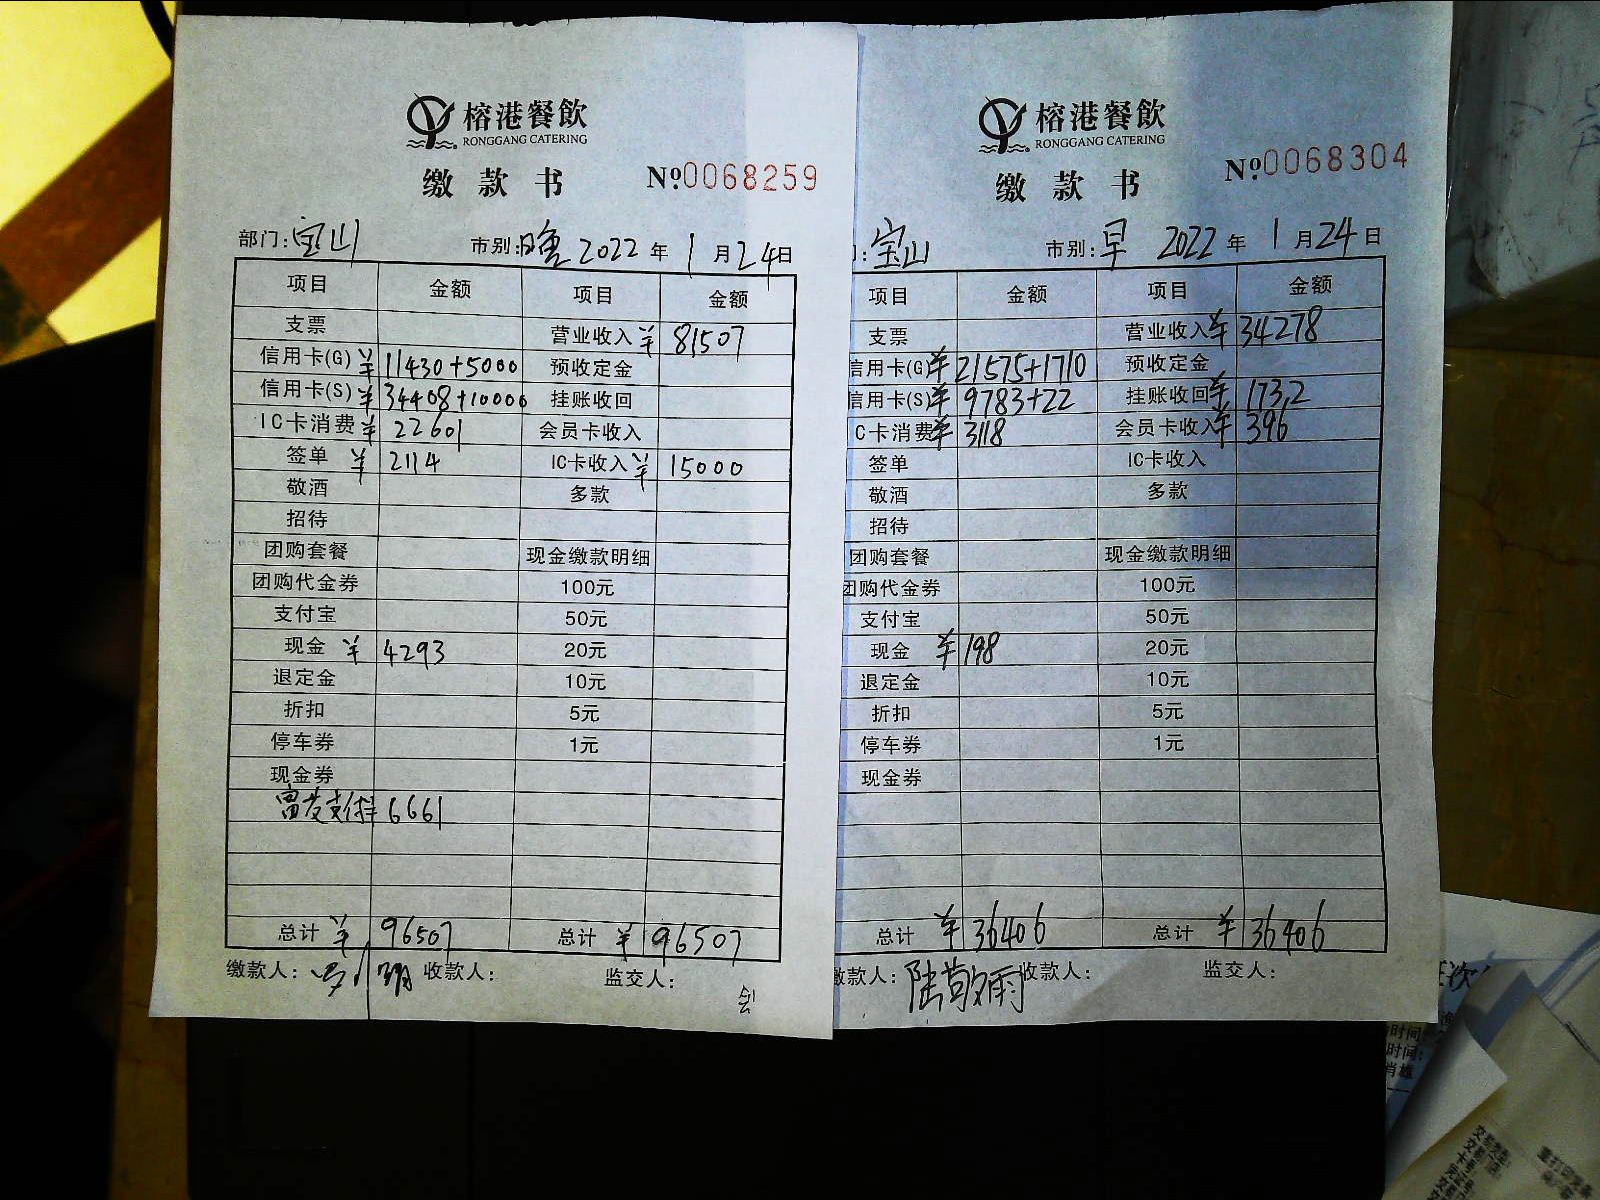 榕港餐飲
RONGGANG CATERING
缴款书 №0068259
部门:宝山 市别:晚 2022年1月24日
项目 金额 项目 金额
支票 营业收入 ¥ 81507
信用卡(G) ¥ 11430+5000 预收定金
信用卡(S) ¥ 34408+10000 挂账收回
IC卡消费 ¥ 22601 会员卡收入
签单 ¥ 2114 IC卡收入 ¥ 15000
敬酒 多款
招待
团购套餐 现金缴款明细
团购代金券 100元
支付宝 50元
现金 ¥ 4293 20元
退定金 10元
折扣 5元
停车券 1元
现金券
6661
总计 ¥ 96507 总计 ¥ 96507
缴款人: 收款人: 监交人:
榕港餐飲
RONGGANG CATERING
缴款书 №0068304
:宝山 市别:早 2022年1月24日
项目 金额 项目 金额
支票 营业收入 ¥ 34278
信用卡(G) ¥ 21575+1710 预收定金
信用卡(S) ¥ 9783+22 挂账收回 ¥ 1732
C卡消费 ¥ 3118 会员卡收入 ¥ 396
签单 IC卡收入
敬酒 多款
招待
团购套餐 现金缴款明细
团购代金券 100元
支付宝 50元
现金 ¥ 198 20元
退定金 10元
折扣 5元
停车券 1元
现金券
总计 ¥ 36406 总计 ¥ 36406
缴款人:陆敬雨 收款人: 监交人:
时间:
时间: